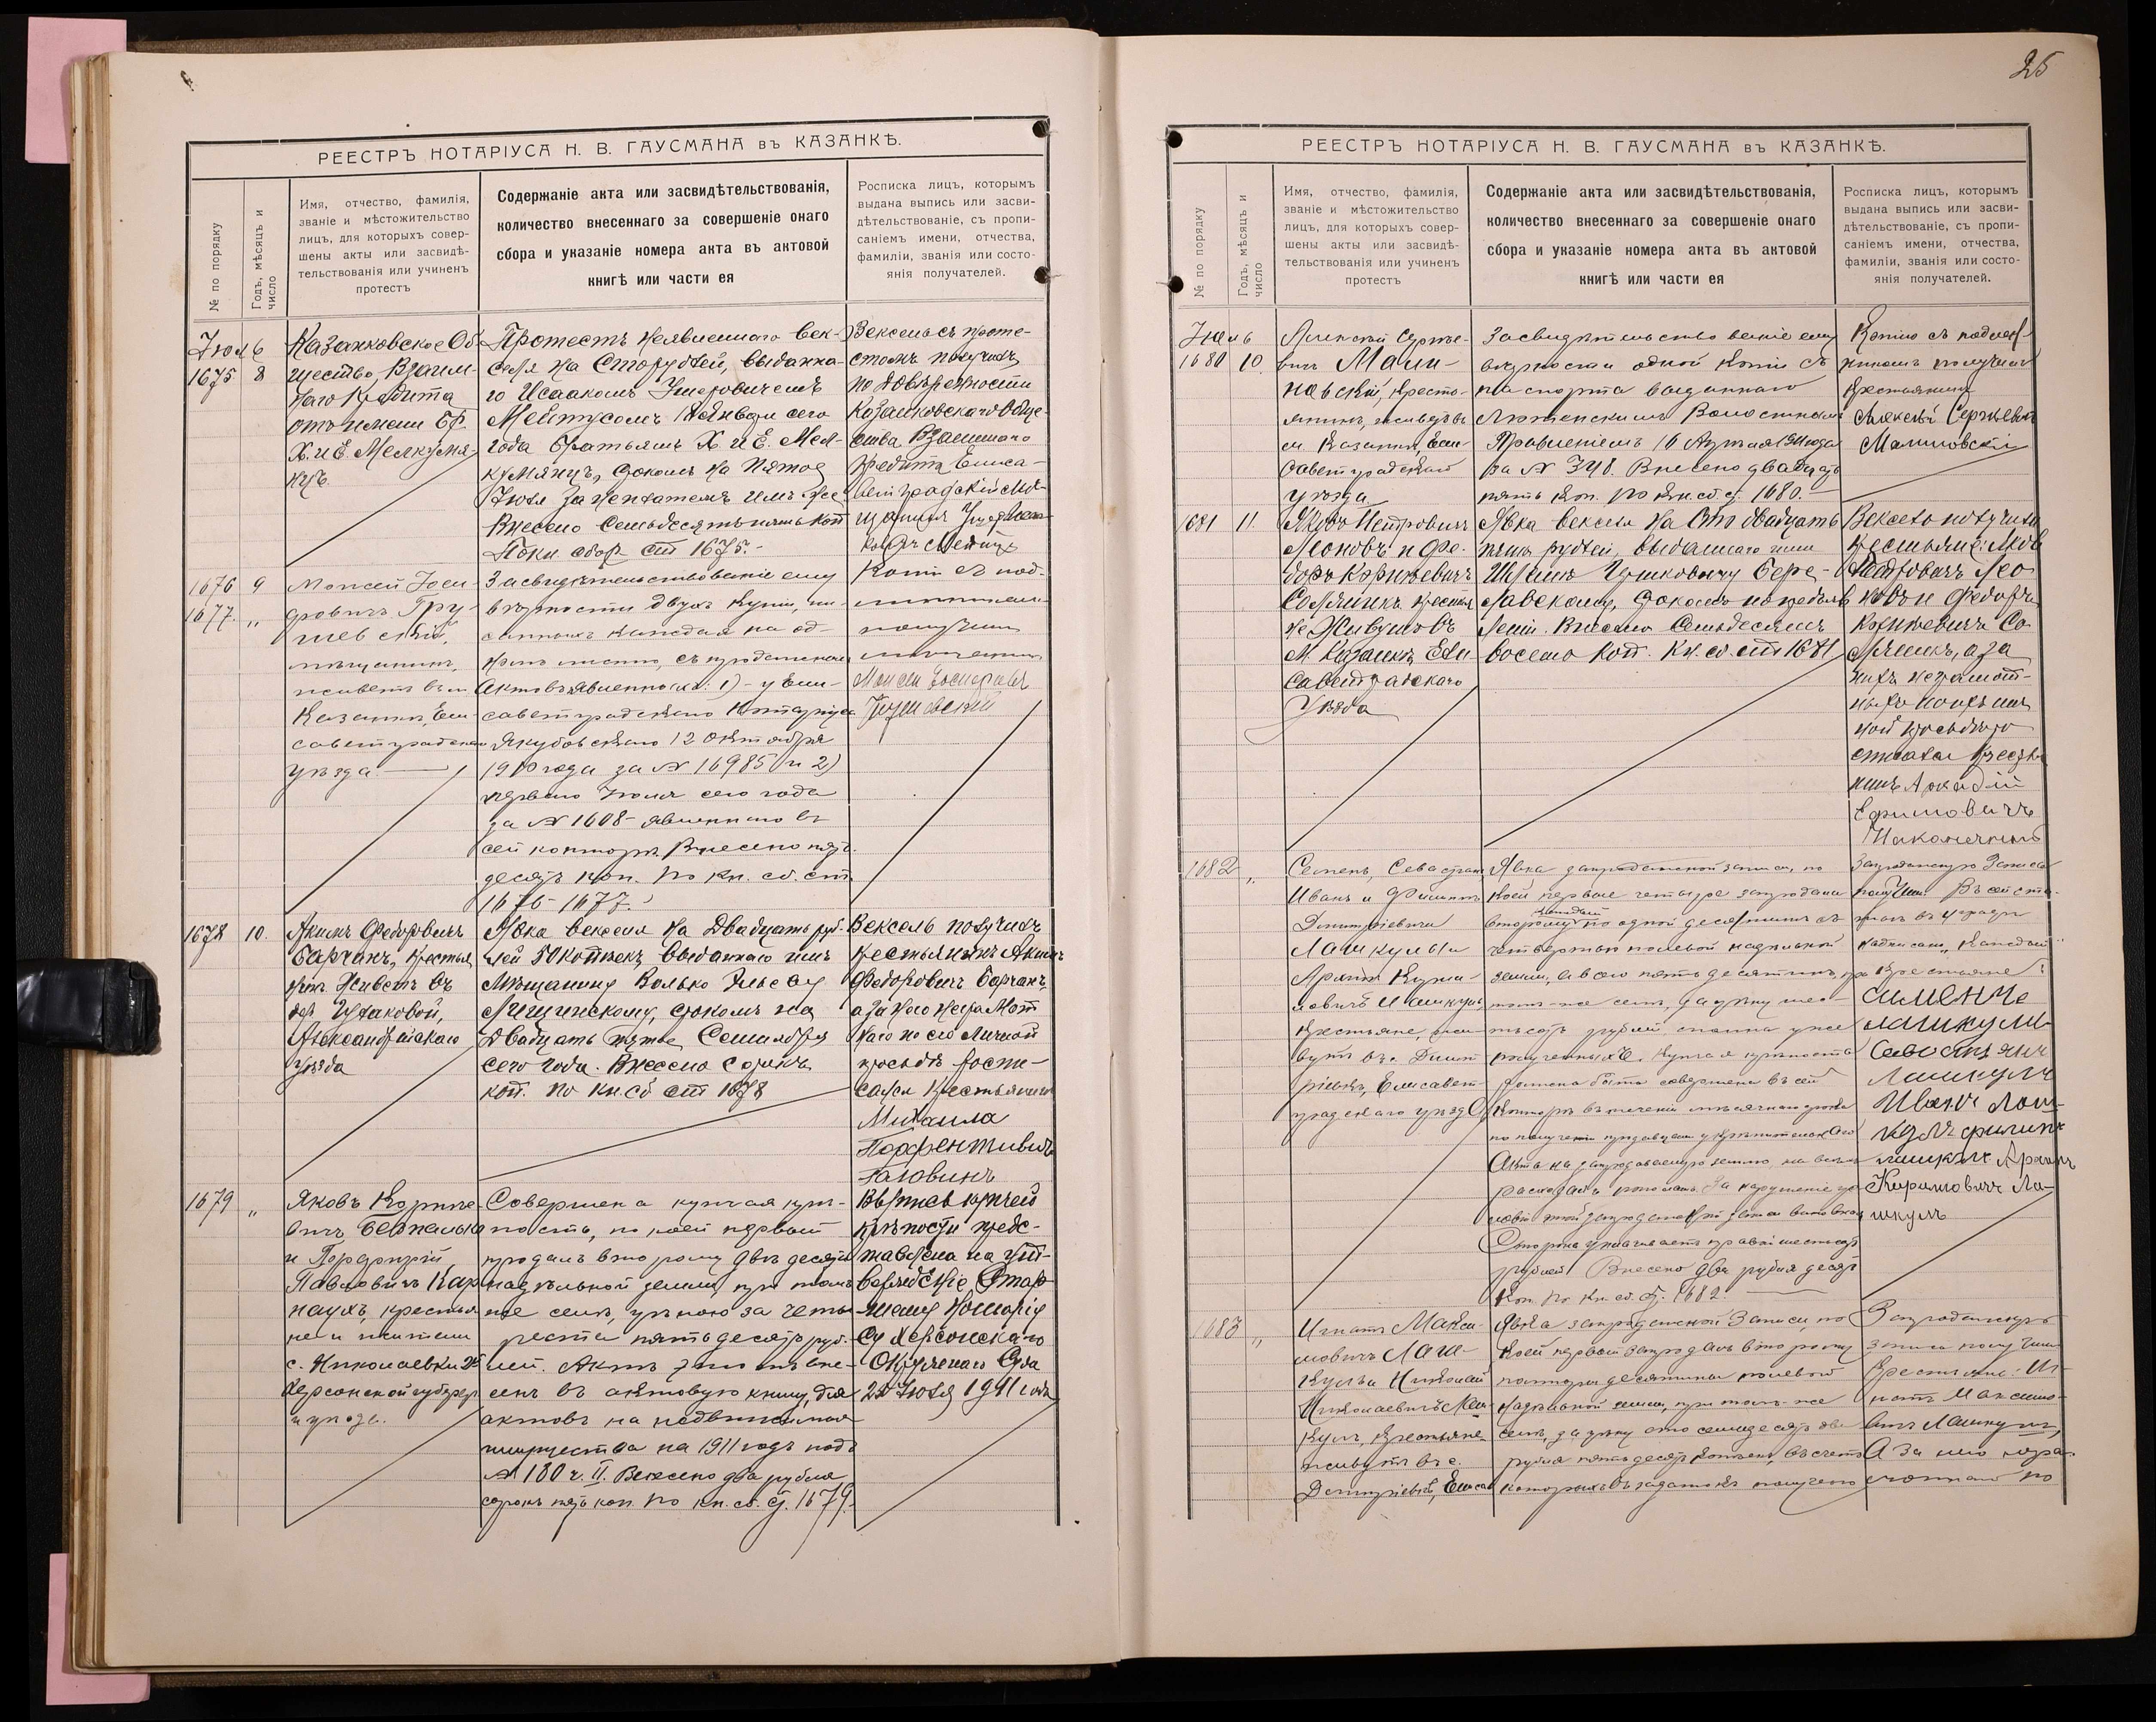 РЕЕСТРЪ НОТАРІУСА Н. В. ГАУСМАНА въ КАЗАНКѢ.
№ по порядку
Годъ, мѣсяцъ и число
Имя, отчество, фамилія,
званіе и мѣстожительство
лицъ, для которыхъ совер-
шены акты или засвидѣ-
тельствованія или учиненъ
протестъ
Содержаніе акта или засвидѣтельствованія,
количество внесеннаго за совершеніе онаго
сбора и указаніе номера акта въ актовой
книгѣ или части ея
Росписка лицъ, которымъ
выдана выпись или засви-
дѣтельствованіе, съ пропи-
саніемъ имени, отчества,
фамиліи, званія или состо-
янія получателей.
Іюль
1675 8
Казанковское Об-
щество Взаим-
наго Кредита
отъ имени Бр.
Х. и Е. Мелкумян-
цъ
Протестъ неявленнаго век-
селя на Сто рублей, выданна-
го Исаакомъ Ушеровичемъ
года братьямъ Х. и Е. Мел-
кумянцъ, срокомъ на Пятое
Іюля за неплатежъ имъ же.
Внесено Семьдесятъ пять коп.
По кн. сбор. ст. 1675.-
Вексель съ проте-
стомъ получилъ
по довѣренности
Казанковскаго Обще-
ства Взаимнаго
Кредита Елиса-
ветградскій мѣ-
щанинъ
1676 9
1677 "
Моисей Іоси-
фовичъ Гру-
шевскій,
мѣщанинъ,
живетъ въ м.
Казанкѣ, Ели-
саветградскаго
уѣзда
Засвидѣтельствованіе ему
вѣрности двухъ копій, пи-
санныхъ каждая на од-
номъ листѣ, съ продажныхъ
актовъ явленныхъ: 1) - у Ели-
саветградскаго Нотаріуса
Якубовскаго 12 Октября
1910 года за № 16985 и 2)
перваго Іюля сего года
за № 1608 - явленнаго въ
сей конторѣ. Внесено пять-
десятъ коп. по кн. сб. ст.
1676-1677.
Копіи съ под-
линными
получилъ
мѣщанинъ
Моисей Іосифовичъ
Грушевскій
1678 10.
Акимъ Федоровичъ
Барчанъ, крестья-
нинъ Живетъ въ
дер.
Александрійскаго
уѣзда
Явка векселя на Двадцать руб-
лей 50 копѣекъ, выданнаго имъ
Мѣщанину Волько
срокомъ на
Двадцать пятое Сентября
сего года. Внесено Сорокъ
коп. По кн. сб. ст. 1678
Вексель получилъ
крестьянинъ Акимъ
Федоровичъ Барчанъ,
а за него неграмот-
наго по его личной
просьбѣ роспи-
сался крестьянинъ
Михаила
1679 "
Яковъ Корнѣе-
вичъ
и Порфирій
Павловичъ Кар-
наухъ, крестья-
не и жители
с. Николаевки 2й
Херсонской губерніи
и уѣзда.
Совершена купчая крѣ-
пость, по коей первый
продалъ второму двѣ десят.
надѣльной земли, при томъ-
же селѣ, цѣною за четы-
реста пятьдесятъ руб-
лей. Актъ этотъ вне-
сенъ въ актовую книгу, для
актовъ на недвижимыя
имущества на 1911 годъ подъ
№ 180 ч. II. Внесено два рубля
сорокъ пять коп. по кн. сб. ст. 1679.
Выпись купчей
крѣпости предс-
тавлена на ут-
вержденіе Стар-
шему Нотаріу-
су Херсонскаго
Окружнаго Суда
Іюля 1911 года
25
РЕЕСТРЪ НОТАРІУСА Н. В. ГАУСМАНА въ КАЗАНКѢ.
№ по порядку
Годъ, мѣсяцъ и число
Имя, отчество, фамилія,
званіе и мѣстожительство
лицъ, для которыхъ совер-
шены акты или засвидѣ-
тельствованія или учиненъ
протестъ
Содержаніе акта или засвидѣтельствованія,
количество внесеннаго за совершеніе онаго
сбора и указаніе номера акта въ актовой
книгѣ или части ея
Росписка лицъ, которымъ
выдана выпись или засви-
дѣтельствованіе, съ пропи-
саніемъ имени, отчества,
фамиліи, званія или состо-
янія получателей.
Іюль
1680 10.
Алексѣй Сергѣе-
вичъ Мали-
новскій, кресть-
янинъ, живетъ въ
м. Казанкѣ, Ели-
саветградскаго
уѣзда
Засвидѣтельствованіе ему
вѣрности одной копіи съ
паспорта выданнаго
Волостнымъ
Правленіемъ 16 Апрѣля 1911 года
за № 348. Внесено двадцать
пять коп. по кн. сб. ст. 1680.
Копію съ подлин-
никомъ получилъ
Крестьянинъ
Алексѣй Сергѣевичъ
Малиновскій
1681 11.
Яковъ Петровичъ
Леоновъ и Фе-
доръ Корнѣевичъ
крестья-
не Живутъ въ
м. Казанкѣ Ели-
саветградскаго
Уѣзда
Явка векселя на Сто двадцать
пять рублей, выданнаго ими
Бере-
славскому, срокомъ
Внесено Семьдесятъ
восемь коп. Кн. сб. ст. 1681
Вексель получили
крестьяне: Яковъ
Петровичъ Лео-
новъ и Федоръ
Корнѣевичъ Со-
а за
нихъ неграмот-
ныхъ по ихъ лич-
ной просьбѣ ро-
списался крестья-
нинъ Аркадій
Ефимовичъ
Наконечный
1682 "
Семенъ, Севастьянъ
Иванъ и Филиппъ
Дмитріевичи
Лашкулы и
Лашкулъ,
крестьяне, жи-
вутъ въ с. Дмит-
ріевкѣ, Елисавет-
градскаго уѣзда
Явка запродажной записи, по
коей первые четыре запродали
второму каждый по одной десятинѣ съ
четвертью полевой надѣльной
земли, а всего пять десятинъ, при
томъ-же селѣ, за цѣну шес-
тьсотъ рублей, сполна уже
полученныхъ. Купчая крѣпость
должна быть совершена въ сей
Конторѣ въ теченіи мѣсячнаго срока
по полученіи продавцами укрѣпительнаго
Акта на запродаваемую землю,
расходы пополамъ. За нарушеніе ус-
ловій этой запродажной записи виновная
Сторона уплачиваетъ правой шестьсотъ
рублей. Внесено два рубля десять
коп. По кн. сб. ст. 1682.
Запродажную Запись
получили. Въ сей ста-
тьѣ въ 4 графѣ
надписано „каждый"
Крестьяне:
Лашкулъ
Лашкулъ
Иванъ Лаш-
кулъ Филипъ
Лашкулъ
Кириловичъ Ла-
шкулъ
1683 "
Игнатъ Макси-
мовичъ Лаш-
кулъ и Николай
Николаевичъ Лаш-
кулъ, крестьяне
живутъ въ с.
Дмитріевкѣ, Елисав
Явка запродажной Записи, по
коей первый запродалъ второму
полторы десятины полевой
надѣльной земли, при томъ-же
селѣ, за цѣну сто семьдесятъ два
рубля пятьдесятъ копѣекъ, въ счетъ
которыхъ въ задатокъ получено
Запродажную
запись получили
Крестьяне: Иг-
натъ Максимо-
вичъ Лашкулъ,
А за него негра-
мотнаго по